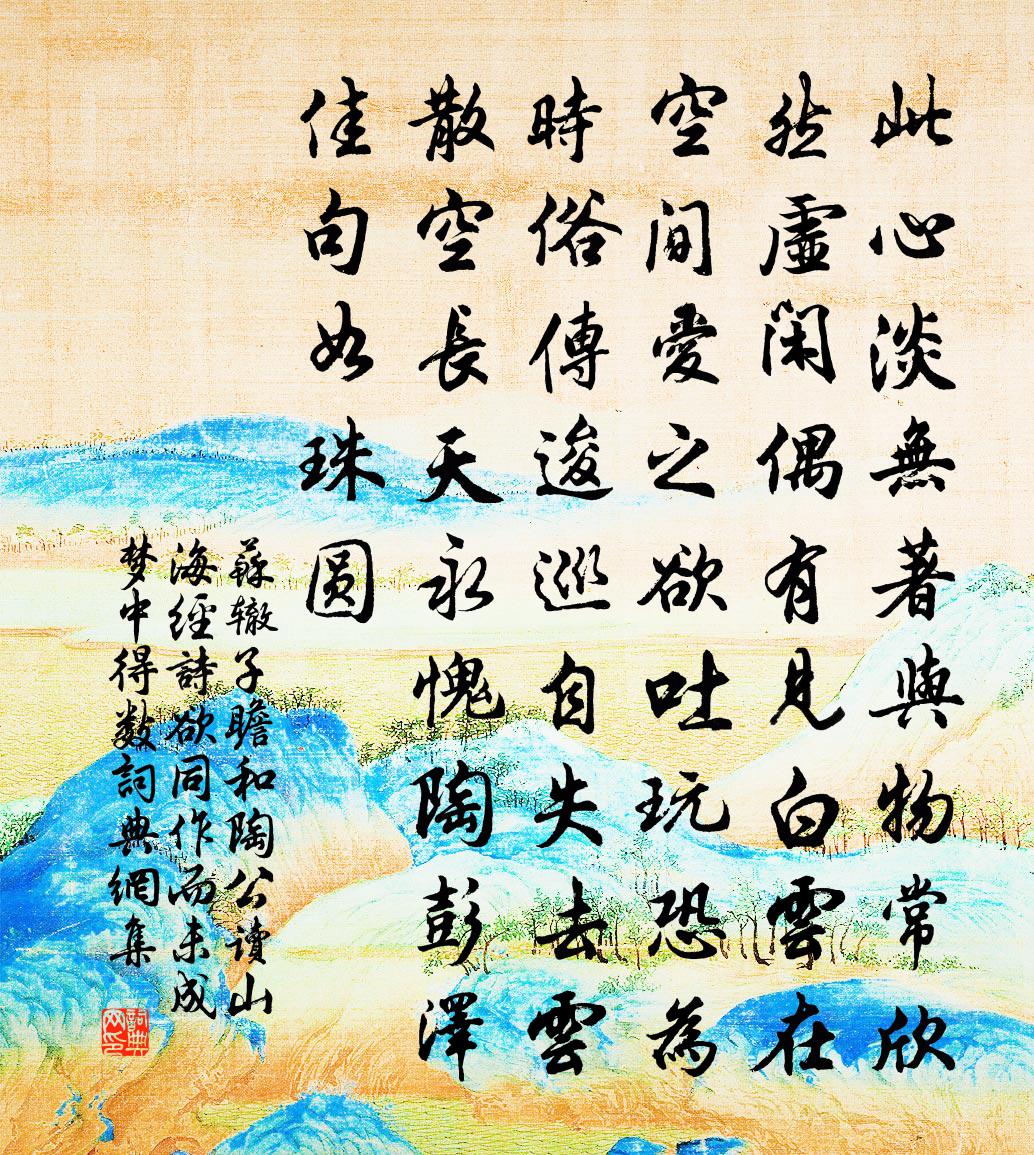 此心淡無著與物常欣
然虛閑偶有見白雲在
空間愛之欲吐玩恐為
時俗傳逡巡自失去雲
散空長天永愧陶彭澤
佳句如珠圓
蘇辙子瞻和陶公讀山
海經詩欲同作而未成
梦中得数詞典網集
詞典
网印